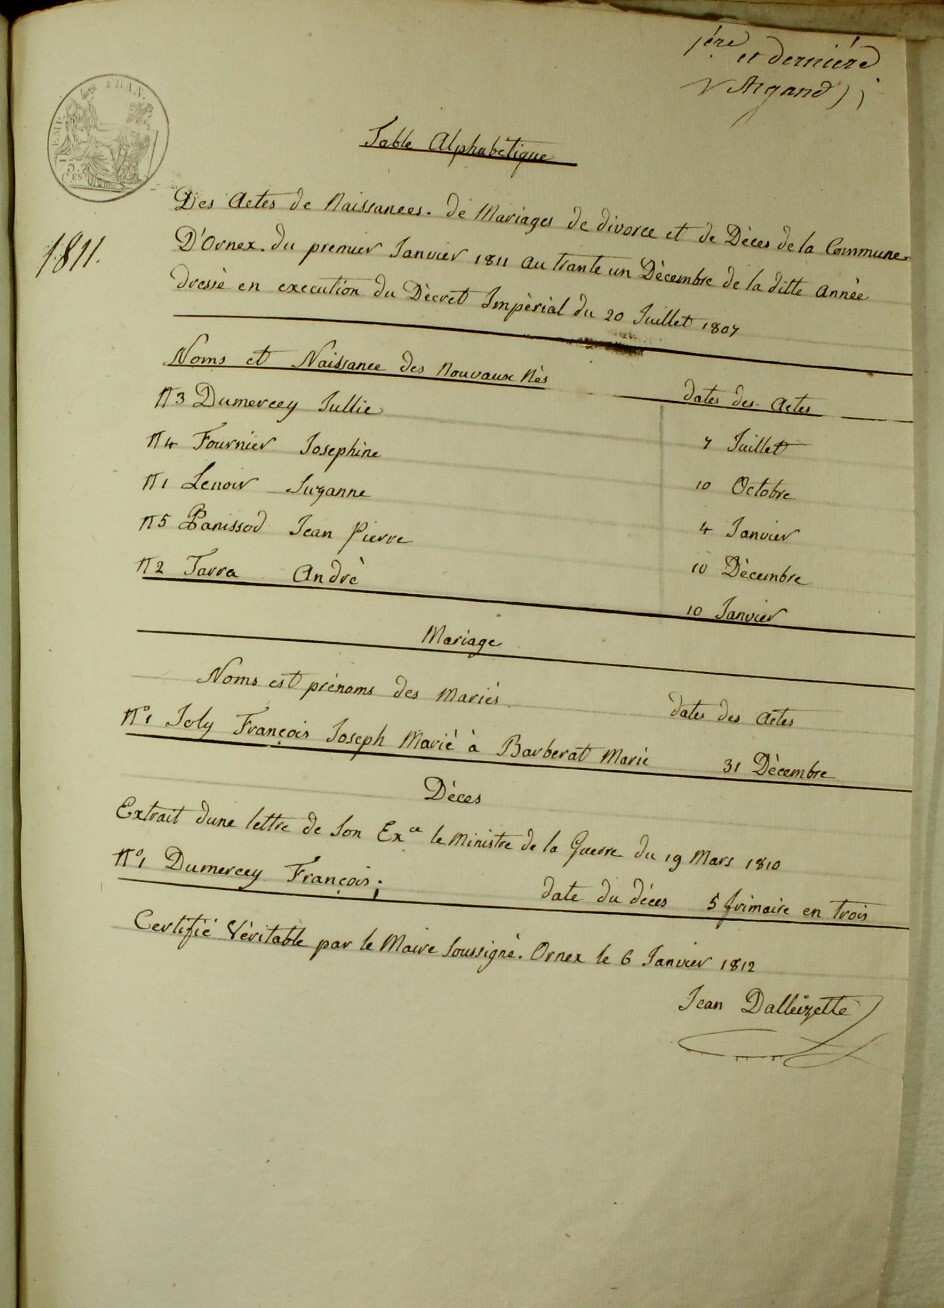 1ère
et dernière
V Argand
EMP. FRAN.
Table Alphabétique
1811.
Des Actes de Naissances. de Mariages de divorce et de Dèces de la Commune
D'Ornex. du premier Janvier 1811 au trante un Dècembre de la ditte Annèe
dressè en execution du Dècret Impèrial du 20 Juillet 1807
Noms et Naissance des Nouvaux Nès dates des Actes
N3 Dumercey Jullie 7 Juillet
N4 Fournier Josephine 10 Octobre
N1 Lenoir Suzanne 4 Janvier
N5 Panissod Jean Pierre 10 Dècembre
N2 Tarra Andrè 10 Janvier
Mariage
Noms est prénoms des Mariés dates des Actes
N°1 Joly François Joseph Marié à Barberat Marie 31 Dècembre
Dèces
Extrait dune lettre de Son Exce le Ministre de la Guerre du 19 Mars 1810
N°1 Dumercey François; date du déces 5 frimaire en trois
Certifié Vèritable par le Maire Soussigné. Ornex le 6 Janvier 1812
Jean Dalleizette